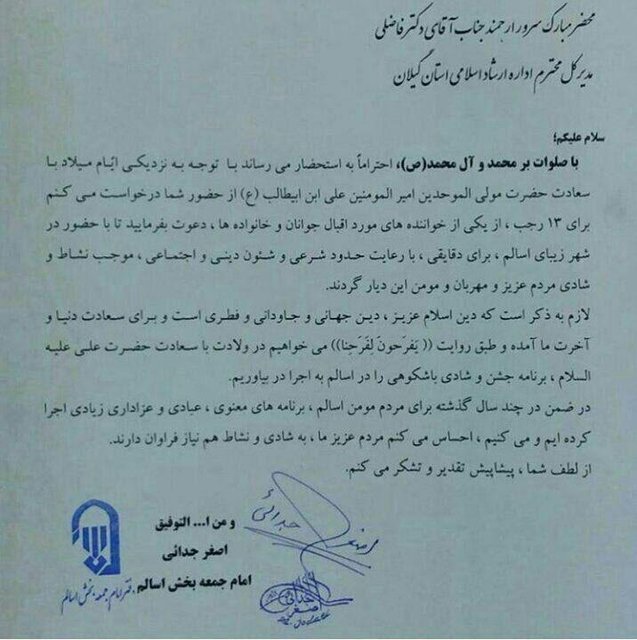 محضر مبارک سرور ارجمند جناب آقای دکتر فاضلی
مدیر کل محترم اداره ارشاد اسلامی استان گیلان
سلام علیکم؛
با صلوات بر محمد و آل محمد(ص)، احتراماً به استحضار می رساند با توجه به نزدیکی ایّام میلاد با
سعادت حضرت مولی الموحدین امیر المومنین علی ابن ابیطالب (ع) از حضور شما درخواست می کنم
برای ۱۳ رجب ، از یکی از خواننده های مورد اقبال جوانان و خانواده ها ، دعوت بفرمایید تا با حضور در
شهر زیبای اسالم ، برای دقایقی ، با رعایت حدود شرعی و شئون دینی و اجتماعی ، موجب نشاط و
شادی مردم عزیز و مهربان و مومن این دیار گردند.
لازم به ذکر است که دین اسلام عزیز ، دین جهانی و جاودانی و فطری است و برای سعادت دنیا و
آخرت ما آمده و طبق روایت (( یَفرَحونَ لِفَرَحِنا)) می خواهیم در ولادت با سعادت حضرت علی علیه
السلام ، برنامه جشن و شادی باشکوهی را در اسالم به اجرا در بیاوریم.
در ضمن در چند سال گذشته برای مردم مومن اسالم ، برنامه های معنوی ، عبادی و عزاداری زیادی اجرا
کرده ایم و می کنیم ، احساس می کنم مردم عزیز ما ، به شادی و نشاط هم نیاز فراوان دارند.
از لطف شما ، پیشاپیش تقدیر و تشکر می کنم.
و من ا... التوفیق
اصغر جدائی
امام جمعه بخش اسالم
اصغر جدائی
دفتر امام جمعه بخش اسالم